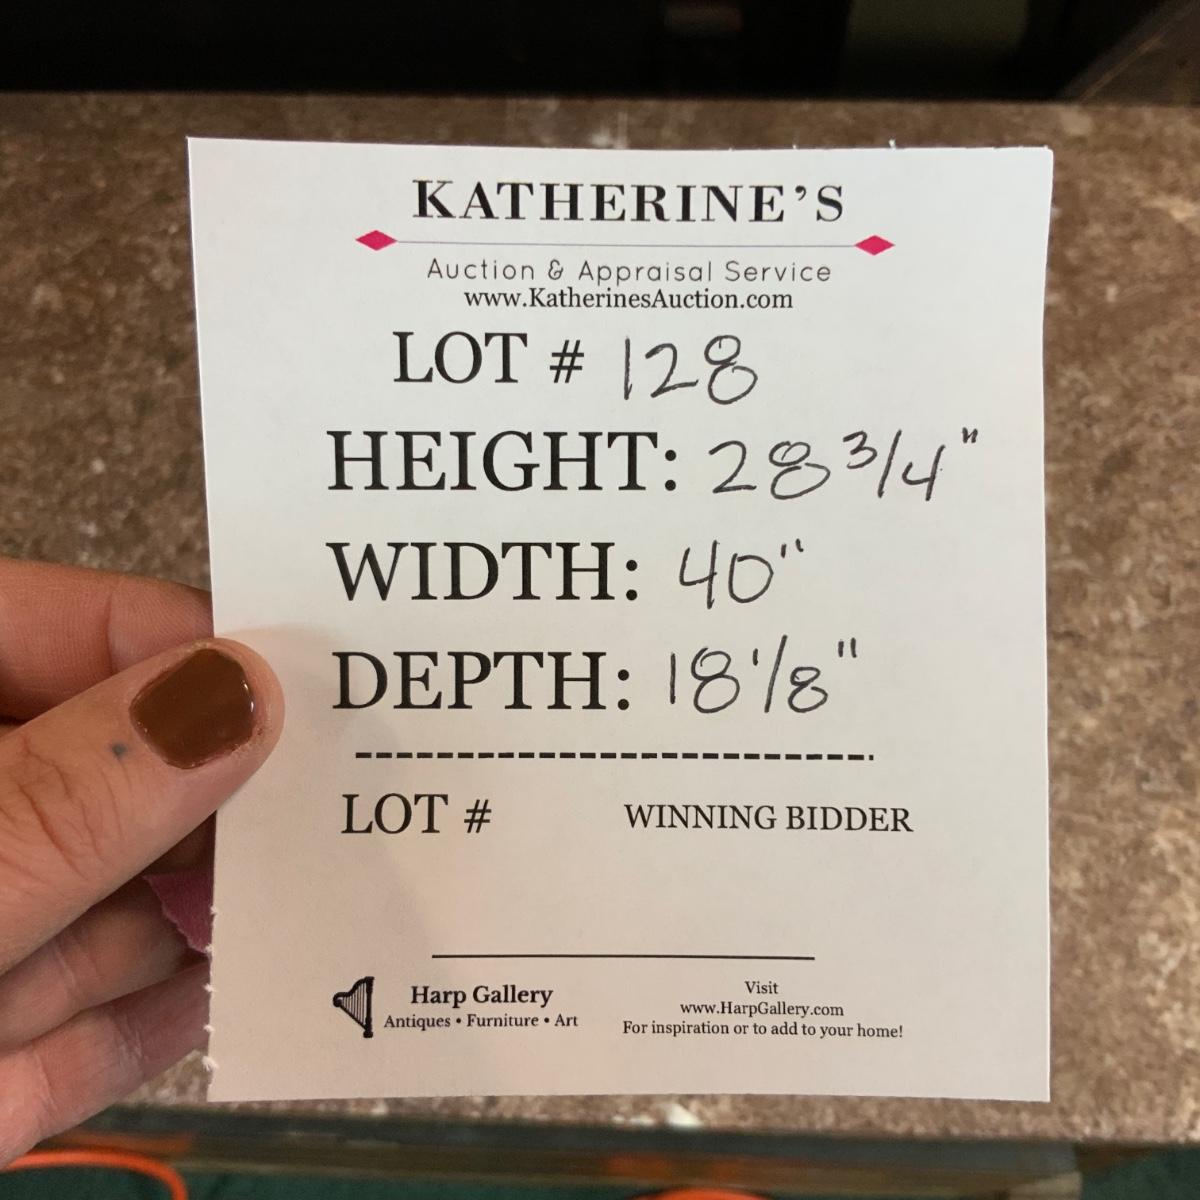 KATHERINE'S
Auction & Appraisal Service
www.KatherinesAuction.com
LOT # 128
HEIGHT: 28 3/4"
WIDTH: 40"
DEPTH: 18 1/8"
LOT # WINNING BIDDER
Harp Gallery
Antiques • Furniture • Art
Visit
www.HarpGallery.com
For inspiration or to add to your home!